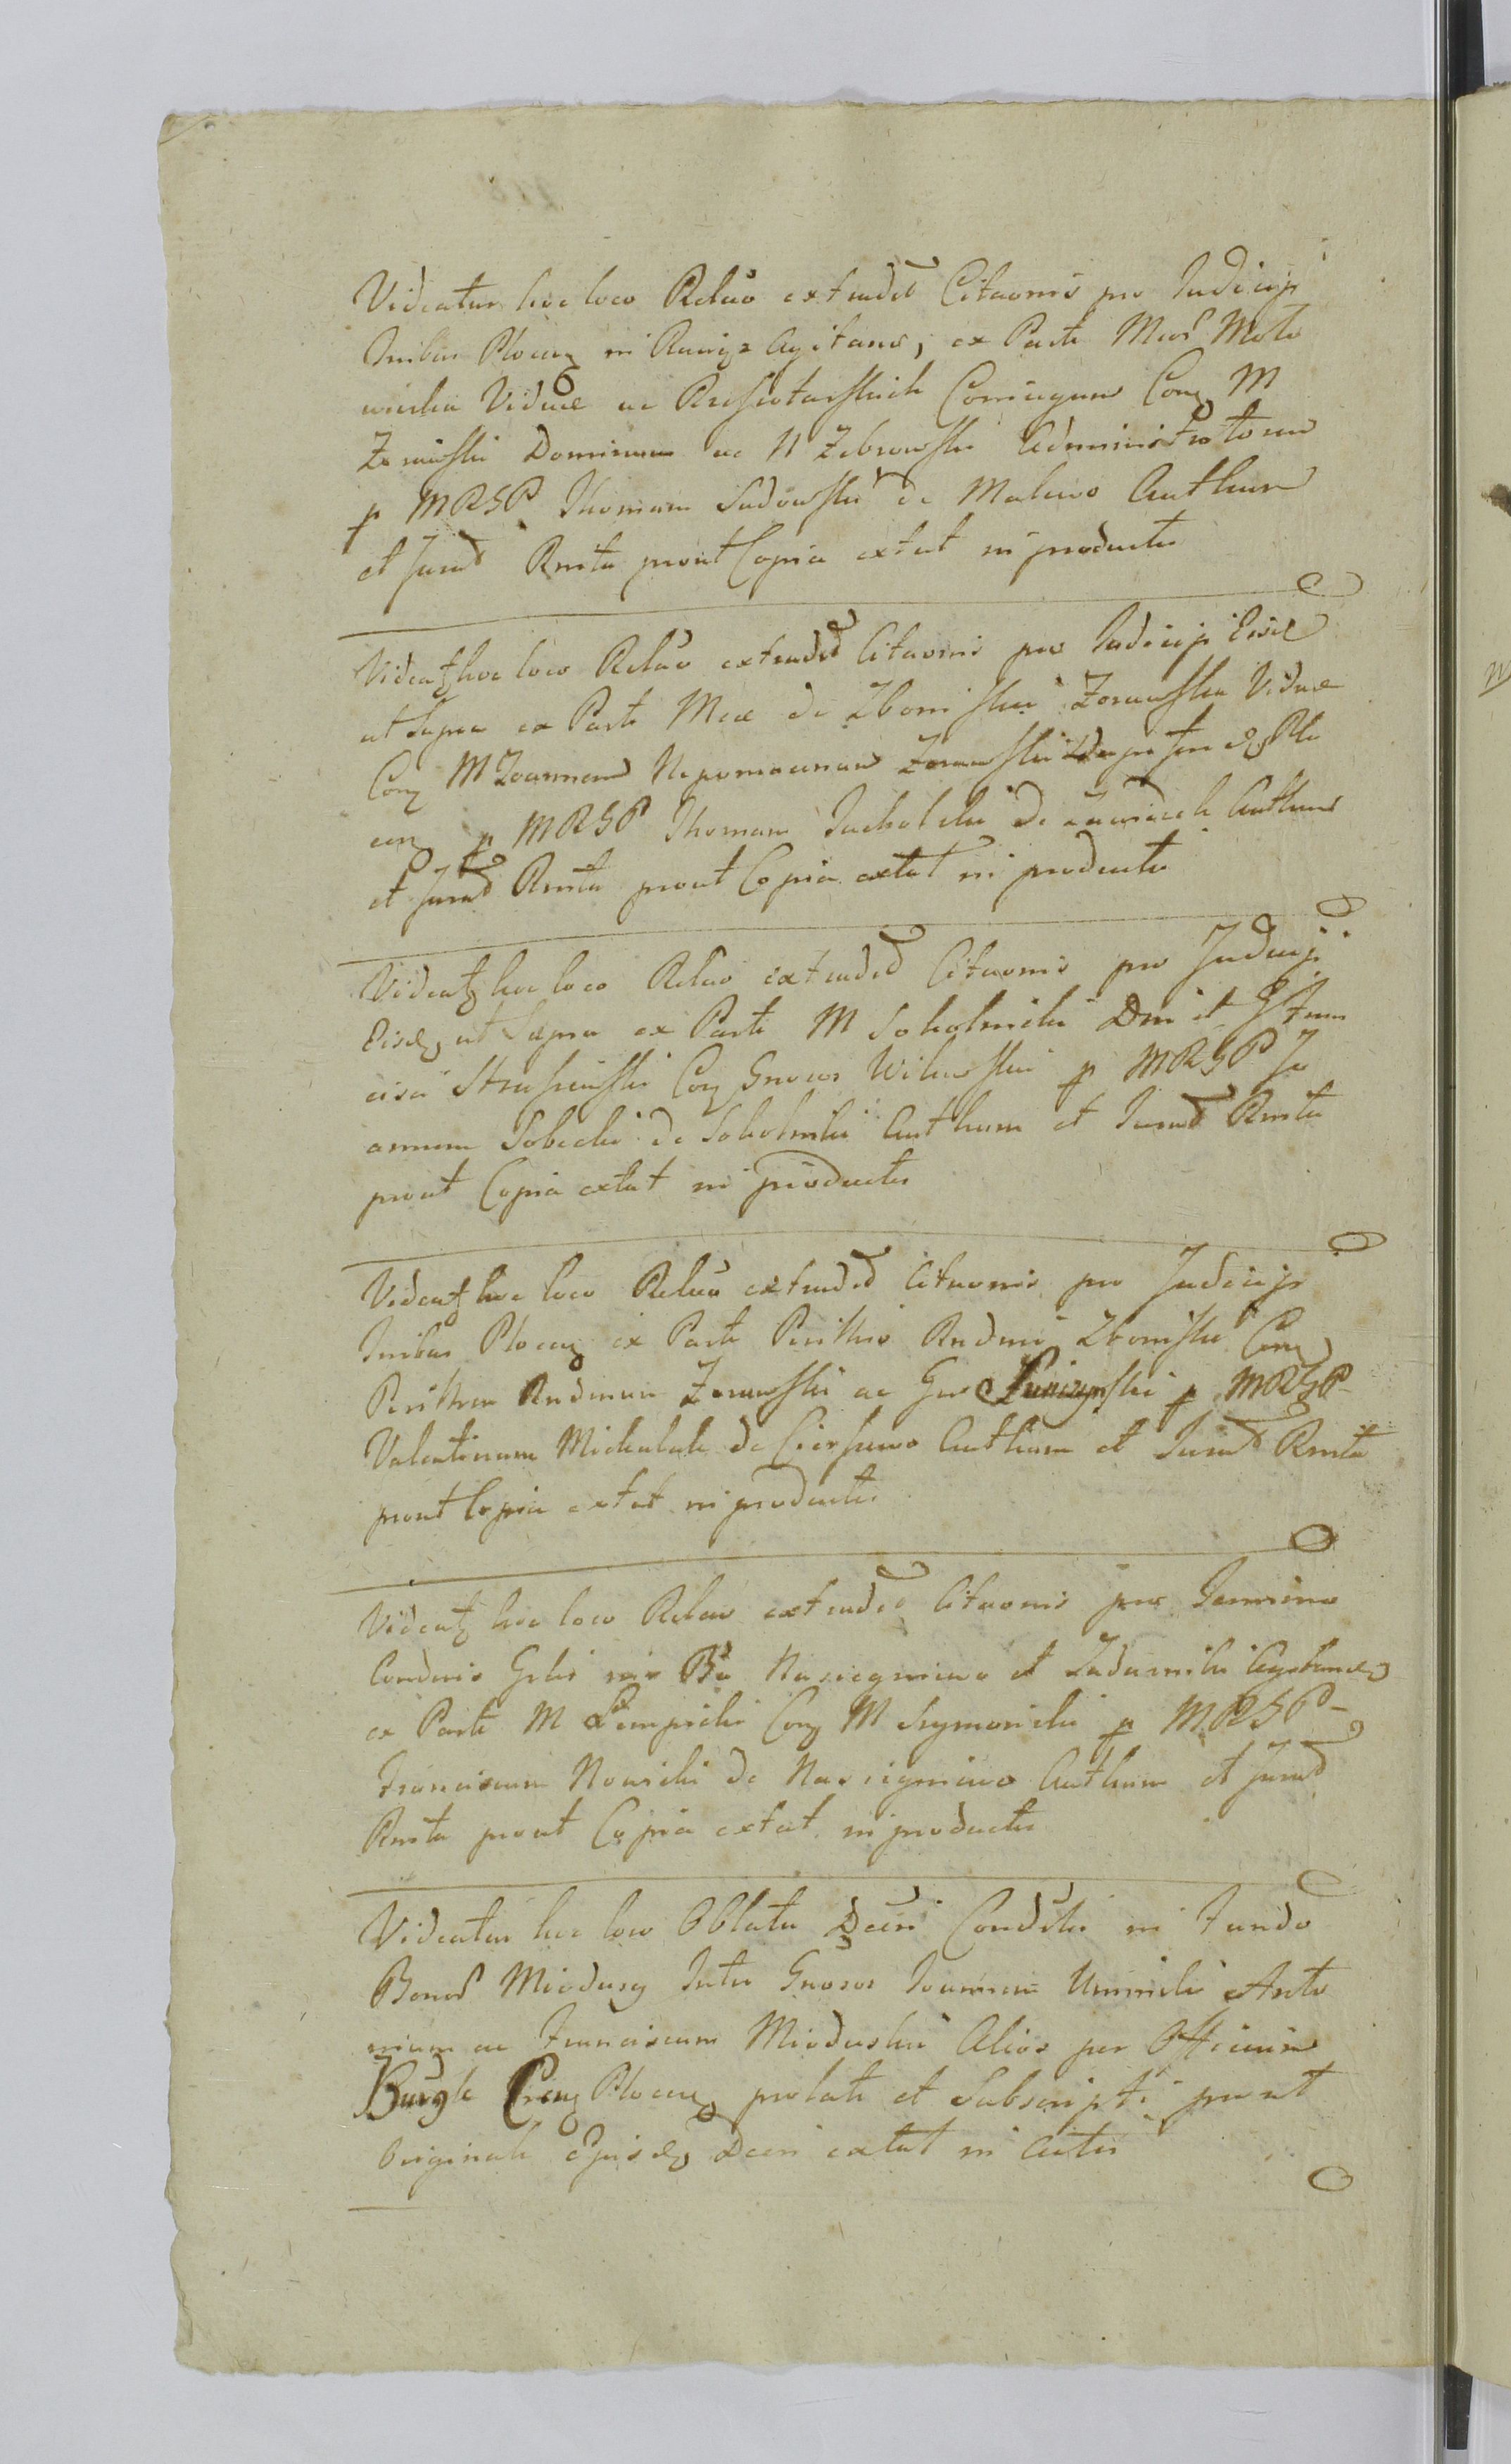 Videatur hoc loco Relao extended Citaonis pro Judicijs
Tribus Plocen in Raciąz Agitans, ex Parte Mcar Moto
wieska Viduae ac Conjugum Con M
Zorawski Dominum ac N Zebrowski Administratorem
p MRGP Thomam Sadowski de Malewo Authum
et Jurad Rnita prout Copia extat in productu
Videat hoc loco Relao extended Citaonis pro Judicijs Eisd
ut supra ex Parte Mcae de Zboinskie Zorawska Viduae
Con M Joannem Nepomucenum Zorawski Ple
cen p MRGP Thomam Sucholski de Authum
et Jurad Rnita prout Copia extat in productu
Videat hoc loco Relao extended Citaonis pro Judicijs
Eisd ut supra ex Parte M Sokolnicki Dni et G Fran
cisci Con Gnosos Wilewski p MRGP Jo
annem Sobecki de Sokolniki Authum et Jurad Rnita
prout Copia extat in productu
Videat hoc loco Relao extended Citaonis pro Judicijs
Tribus Plocen ex Parte Perillris Rndmi Zboinski Con
Perillrem Rndmum Zorawski ac Gn p MRGP
Valentinum Michalak de Ciersewo Authum et Jurad Rnita
prout Copia extat in productu
Videat hoc loco Relao extended Citaonis pro Termino
Condnis Grbi in Bo Nasiegniewo et Zadusniki Agitand
ex Parte M Lempicki Con M Szymanski p MRGP
Franciscum Nowicki de Nasiegniewo Authum et Jurad
Rnita prout Copia extat in productu
Videatur hoc loco Oblata Decri Condlis in Fundo
Bonor Miodusy Inter Gnosos Joannem Uminski Anto
nium ac Franciscum Mioduski Alios per Officium
Burgle Cren Plocen prolati et Subscripti prout
Originale Ejusd Decri extat in Actis